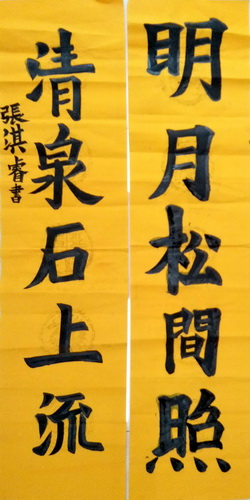 明月松間照
清泉石上流
張淇睿書